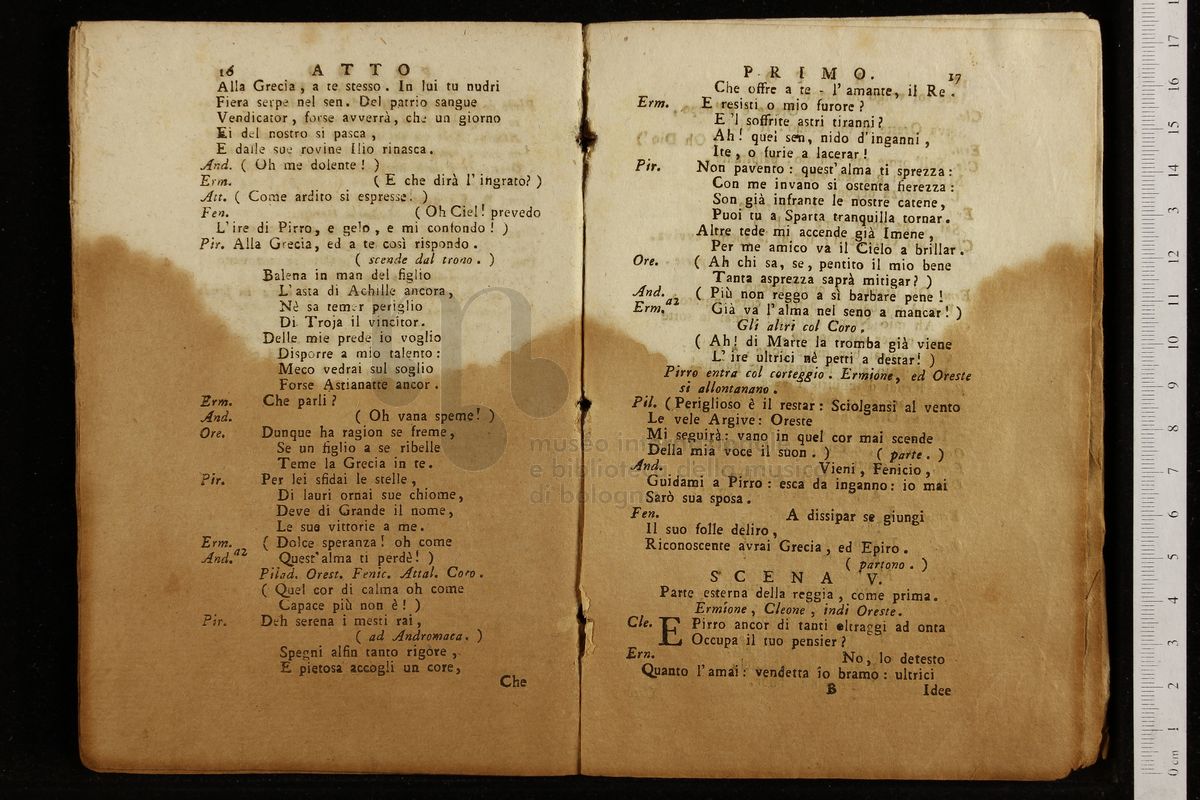 16 ATTO
Alla Grecia, a te stesso. In lui tu nudri
Fiera serpe nel sen. Del patrio sangue
Vendicator, forse avverrà, che un giorno
Ei del nostro si pasca,
E dalle sue rovine Ilio rinasca.
And. ( Oh me dolente! )
Erm. ( E che dirà l'ingrato? )
Att. ( Come ardito si espresse. )
Fen. ( Oh Ciel! prevedo
L'ire di Pirro, e gelo, e mi confondo! )
Pir. Alla Grecia, ed a te così rispondo.
( scende dal trono. )
Balena in man del figlio
L'asta di Achille ancora,
Nè sa temer periglio
Di Troja il vincitor.
Delle mie prede io voglio
Disporre a mio talento:
Meco vedrai sul soglio
Forse Astianatte ancor.
Erm. Che parli?
And. ( Oh vana speme! )
Ore. Dunque ha ragion se freme,
Se un figlio a se ribelle
Teme la Grecia in te.
Pir. Per lei sfidai le stelle,
Di lauri ornai sue chiome,
Deve di Grande il nome,
Le sue vittorie a me.
Erm. ( Dolce speranza! oh come
And. a2 Quest'alma ti perdè! )
Pilad. Orest. Fenic. Attal. Coro.
( Quel cor di calma oh come
Capace più non è! )
Pir. Deh serena i mesti rai,
( ad Andromaca. )
Spegni alfin tanto rigore,
E pietosa accogli un core,
Che
PRIMO. 17
Che offre a te - l'amante, il Re.
Erm. E resisti o mio furore?
E 'l soffrite astri tiranni?
Ah! quel sen, nido d'inganni,
Ite, o furie a lacerar!
Pir. Non pavento: quest'alma ti sprezza:
Con me invano si ostenta fierezza:
Son già infrante le nostre catene,
Puoi tu a Sparta tranquilla tornar.
Altre tede mi accende già Imene,
Per me amico va il Cielo a brillar.
Ore. ( Ah chi sa, se, pentito il mio bene
Tanta asprezza saprà mitigar? )
And. ( Più non reggo a sì barbare pene!
Erm. a2 Già va l'alma nel seno a mancar! )
Gli altri col Coro.
( Ah! di Marte la tromba già viene
L'ire ultrici nè petti a destar! )
Pirro entra col corteggio. Ermione, ed Oreste
si allontanano.
Pil. ( Periglioso è il restar: Sciolgansi al vento
Le vele Argive: Oreste
Mi seguirà: vano in quel cor mai scende
Della mia voce il suon. ) ( parte. )
And. Vieni, Fenicio,
Guidami a Pirro: esca da inganno: io mai
Sarò sua sposa.
Fen. A dissipar se giungi
Il suo folle deliro,
Riconoscente avrai Grecia, ed Epiro.
( partono. )
SCENA V.
Parte esterna della reggia, come prima.
Ermione, Cleone, indi Oreste.
Cle. E Pirro ancor di tanti oltraggi ad onta
Occupa il tuo pensier?
Ern. No, lo detesto
Quanto l'amai: vendetta io bramo: ultrici
B Idee
museo internazionale
e biblioteca della musica
di bologna
0 cm 1 2 3 4 5 6 7 8 9 10 11 12 13 14 15 16 17